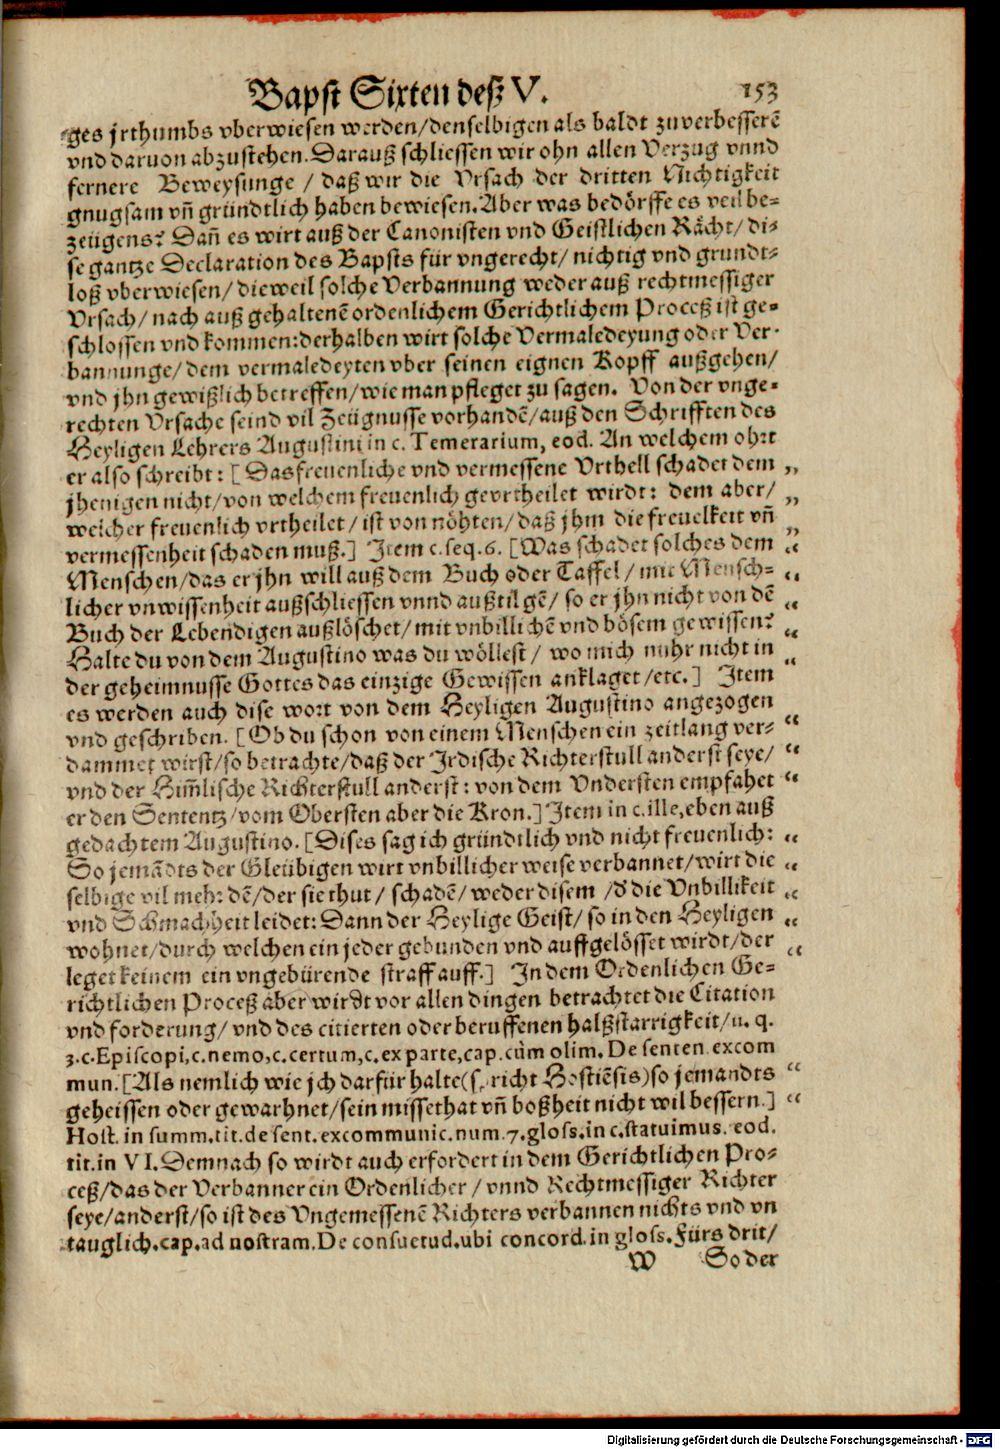 Bapst Sixten deß V. 153
ges jrthumbs vberwiesen werden/denselbigen als baldt zuverbesserẽ
vnd daruon abzustehen. Darauß schliessen wir ohn allen Verzug vnnd
fernere Beweysunge / daß wir die Vrsach der dritten Nichtigkeit
gnugsam vñ gründtlich haben bewiesen. Aber was bedörffe es veil be-
zeügens? Dañ es wirt auß der Canonisten vnd Geistlichen Rächt/ di-
se gantze Declaration des Bapsts für vngerecht/ nichtig vnd grundt-
loß vberwiesen/ dieweil solche Verbannung weder auß rechtmessiger
Vrsach/ nach auß gehaltenẽ ordenlichem Gerichtlichem Proceß ist ge-
schlossen vnd kommen: derhalben wirt solche Vermaledeyung oder Ver-
bannunge/ dem vermaledeyten vber seinen eignen Kopff außgehen/
vnd jhn gewißlich betreffen/ wie man pfleget zu sagen. Von der vnge-
rechten Vrsache seind vil Zeügnusse vorhandẽ/ auß den Schrifften des
Heyligen Lehrers Augustini in c. Temerarium, eod. An welchem ohrt
er also schreibt: [ Das freuenliche vnd vermessene Vrthell schadet dem „
jhenigen nicht/ von welchem freuenlich gevrtheilet wirdt: dem aber/ „
welcher freuenlich vrtheilet/ ist von nöhten/ daß jhm die freuelkeit vñ „
vermessenheit schaden muß.] Item c. seq. 6. [Was schadet solches dem “
Menschen/ das er jhn will auß dem Buch oder Taffel/ mit Mensch- “
licher vnwissenheit außschliessen vnnd außtilgẽ/ so er jhn nicht von dẽ “
Buch der Lebendigen außlöschet/ mit vnbillichẽ vnd bösem gewissen? “
Halte du von dem Augustino was du wöllest/ wo mich nuhr nicht in “
der geheimnusse Gottes das einzige Gewissen anklaget/etc.] Item
es werden auch dise wort von dem Heyligen Augustino angezogen
vnd geschriben. [ Ob du schon von einem Menschen ein zeitlang ver- “
dammet wirst/ so betrachte/ daß der Irdische Richterstull anderst seye/ “
vnd der Him̃lische Richterstull anderst: von dem Vndersten empfahet “
er den Sententz/ vom Obersten aber die Kron.] Item in c. ille, eben auß
gedachtem Augustino. [Dises sag ich gründtlich vnd nicht freuenlich: “
So jemãdts der Gleübigen wirt vnbillicher weise verbannet/ wirt die “
selbige vil mehr dẽ/ der sie thut/ schadẽ/ weder disem /d̕ die Vnbillikeit “
vnd Schmachheit leidet: Dann der Heylige Geist/ so in den Heyligen “
wohnet/ durch welchen ein jeder gebunden vnd auffgelösset wirdt/ der “
leget keinem ein vngebürende straff auff.] In dem Ordenlichen Ge-
richtlichen Proceß aber wirdt vor allen dingen betrachtet die Citation
vnd forderung/ vnd des citierten oder beruffenen halßstarrigkeit/ u. q.
3. c. Episcopi, c. nemo, c. certum, c. ex parte, cap. cùm olim. De senten. excom
mun. [Als nemlich wie jch darfür halte (spricht Hostiẽsis) so jemandts “
geheissen oder gewarhnet/ sein missethat vñ boßheit nicht wil bessern.] “
Host. in summ. tit. de sent. excommunic. num. 7. gloss. in c. statuimus. eod.
tit. in VI. Demnach so wirdt auch erfordert in dem Gerichtlichen Pro-
ceß/ das der Verbanner ein Ordenlicher / vnnd Rechtmessiger Richter
seye/ anderst/ so ist des Vngemessenẽ Richters verbannen nichts vnd vn
tauglich. cap. ad nostram. De consuetud. ubi concord. in gloss. Fürs drit/
W So der
Digitalisierung gefördert durch die Deutsche Forschungsgemeinschaft - DFG